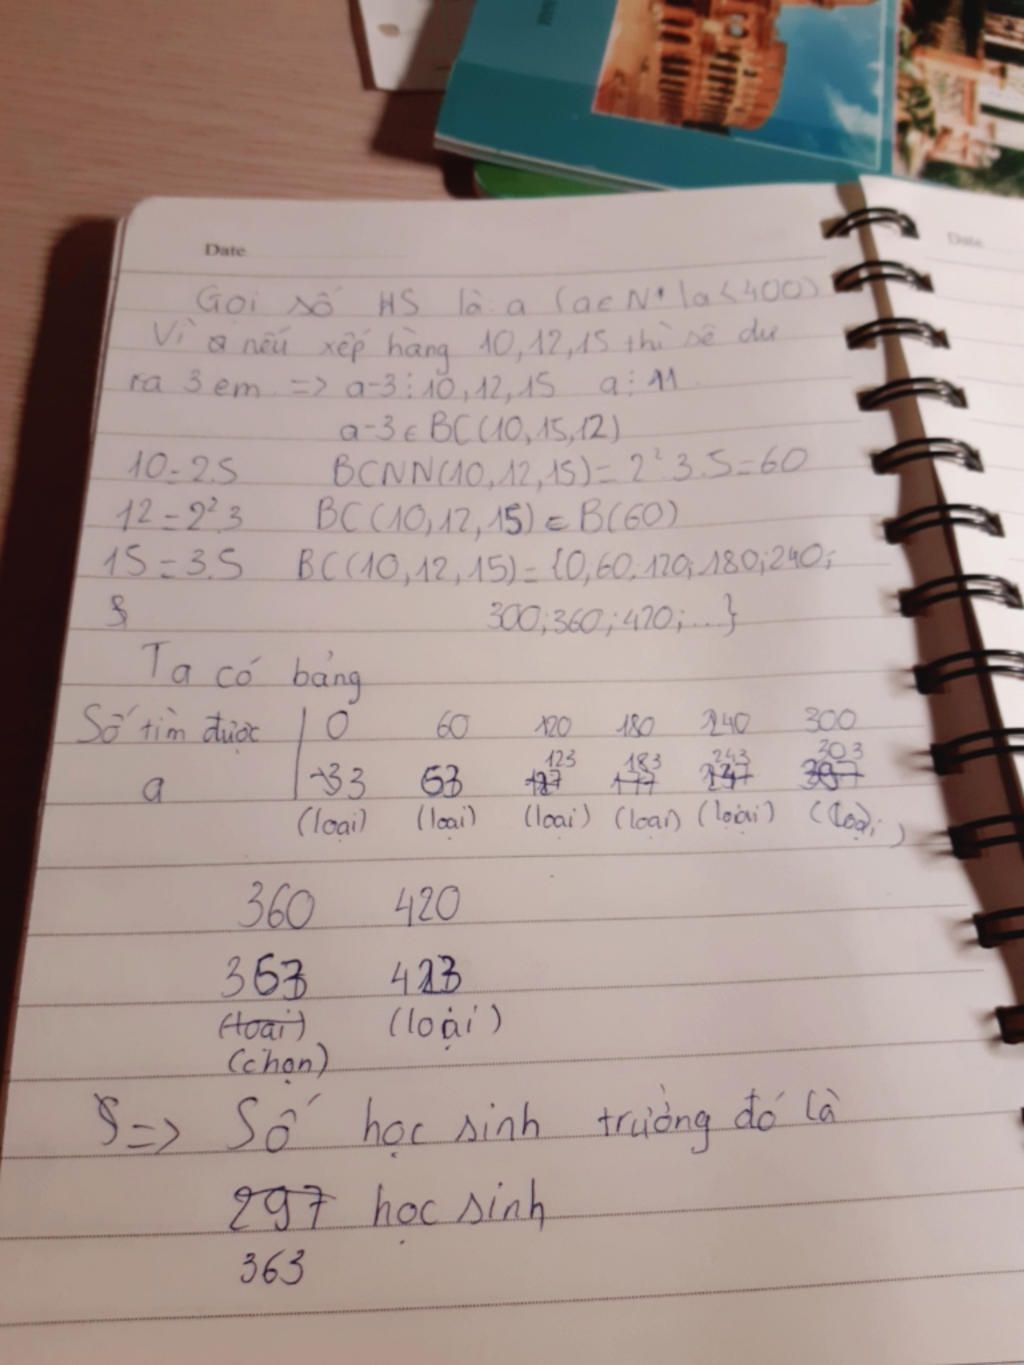 Date
Date
Gọi số HS là a (a∈N* |a<400)
Vì a nếu xếp hàng 10,12,15 thì sẽ dư
ra 3 em => a-3⋮10,12,15 a⋮11
a-3∈BC(10,15,12)
10=2.5 BCNN(10,12,15)=2².3.5=60
12=2².3 BC(10,12,15)∈B(60)
15=3.5 BC(10,12,15)={0,60;120;180;240;
300;360;420;...}
Ta có bảng
Số tìm được 0 60 120 180 240 300
123 183 243 303
a 33 63 127 177 237 397
(loại) (loại) (loại) (loại) (loại) (loại)
360 420
363 423
(loại) (loại)
(chọn)
=> Số học sinh trường đó là
297 học sinh
363